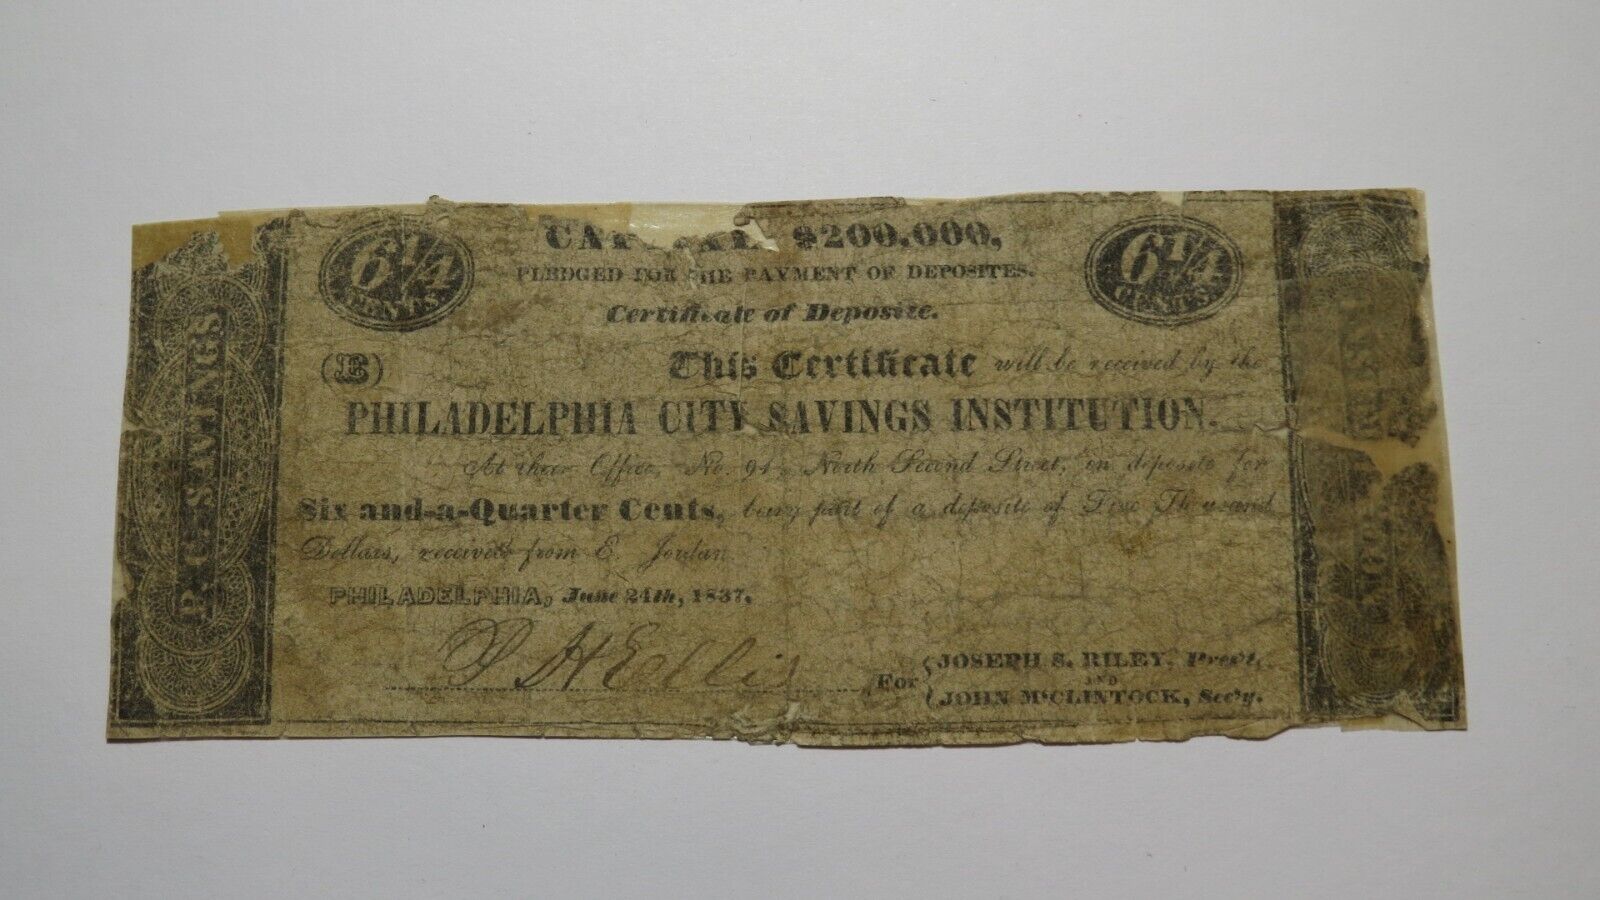 P. C. SAVINGS
6 1/4
CENTS.
$200,000,
6 1/4
CENTS.
PLEDGED FOR THE PAYMENT OF DEPOSITES.
Certificate of Deposite.
(E)
This Certificate will be received by the
PHILADELPHIA CITY SAVINGS INSTITUTION.
At their Office, No. 91 North Second Street, on deposite for
Six and-a-Quarter Cents, being part of a deposite of Five Thousand
Dollars, received from E. Jordan
PHILADELPHIA, June 24th, 1837.
For
JOSEPH S. RILEY, Pres't,
AND
JOHN McCLINTOCK, Sec'y.